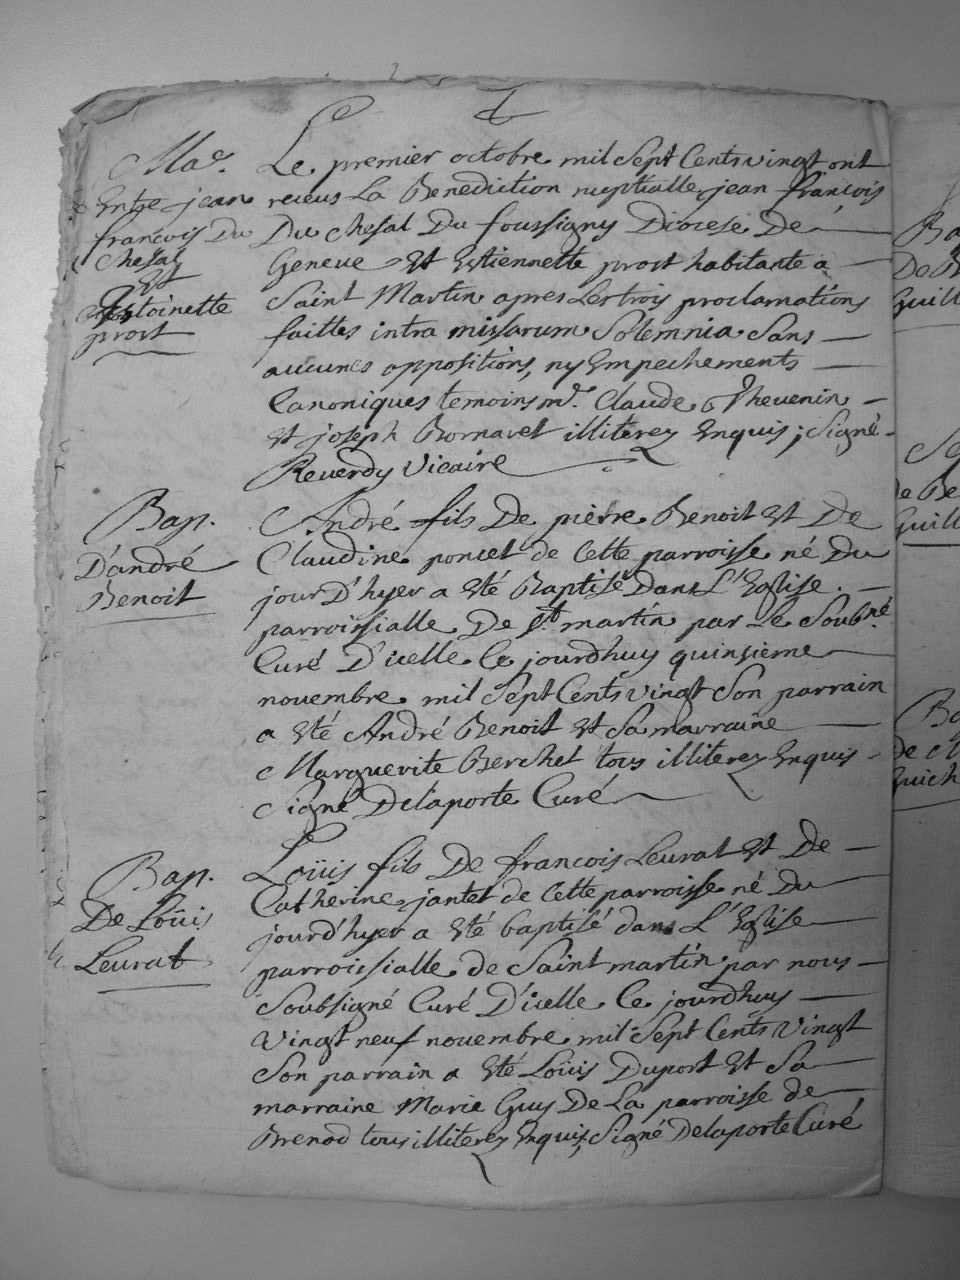 Mar.
Entre jean
francois Du
Chesal
Et
Antoinette
prost
Le premier octobre mil Sept Cents vingt ont
receus La Benediction nuptialle jean francois
Du Chesal Du foussigny Diocese De
Geneve Et Estiennette prost habitante a
Saint Martin apres Les trois proclamations
faittes intra missarum Solemnia Sans
aucunes oppositions, ny Empechements
Canoniques temoins mr. Claude Thevenin
Et joseph Bornaret illiterez Enquis; Signé
Reverdy Vicaire
Bap.
D'andré
Benoit
André fils De pierre Benoit Et De
Claudine poncet de Cette parroisse né Du
jour D'hyer a Eté Baptisé Dans L'Eglise
parroissialle De St. martin par Le Soubné.
Curé D'icelle Ce jourdhuy quinsieme
novembre mil Sept Cents vingt Son parrain
a Eté André Benoit Et Sa marraine
Marguerite Berchet tous illiterez Enquis
Signé Delaporte Curé
Bap.
De Loüis
Leurat
Loüis fils De francois Leurat Et De
Catherine jantet de Cette parroisse né Du
jourd'hyer a Eté baptisé dans L'Eglise
parroissialle de Saint martin par nous
Soubsigné Curé D'icelle Ce jourdhuy
Vingt neuf novembre mil Sept Cents Vingt
Son parrain a Eté Loüis Duport Et Sa
marraine Marie Guy De La parroisse de
Brenod tous illiterez Enquis, Signé Delaporte Curé
Ba
De B
Guill
de Be
Guill
Ba
de
Guich